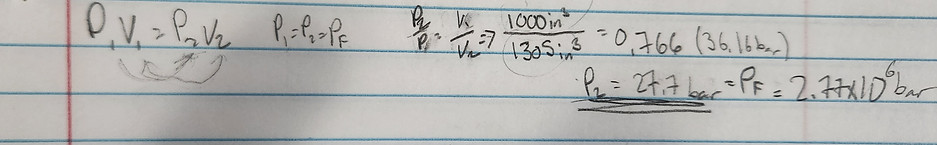 P₁V₁ = P₂V₂ P₁=P₂=P_F P₂/P₁ = V₁/V₂ => 1000in³/1305in³ = 0,766 (36,16bar)
P₂ = 27,7 bar = P_F = 2.77x10⁶bar